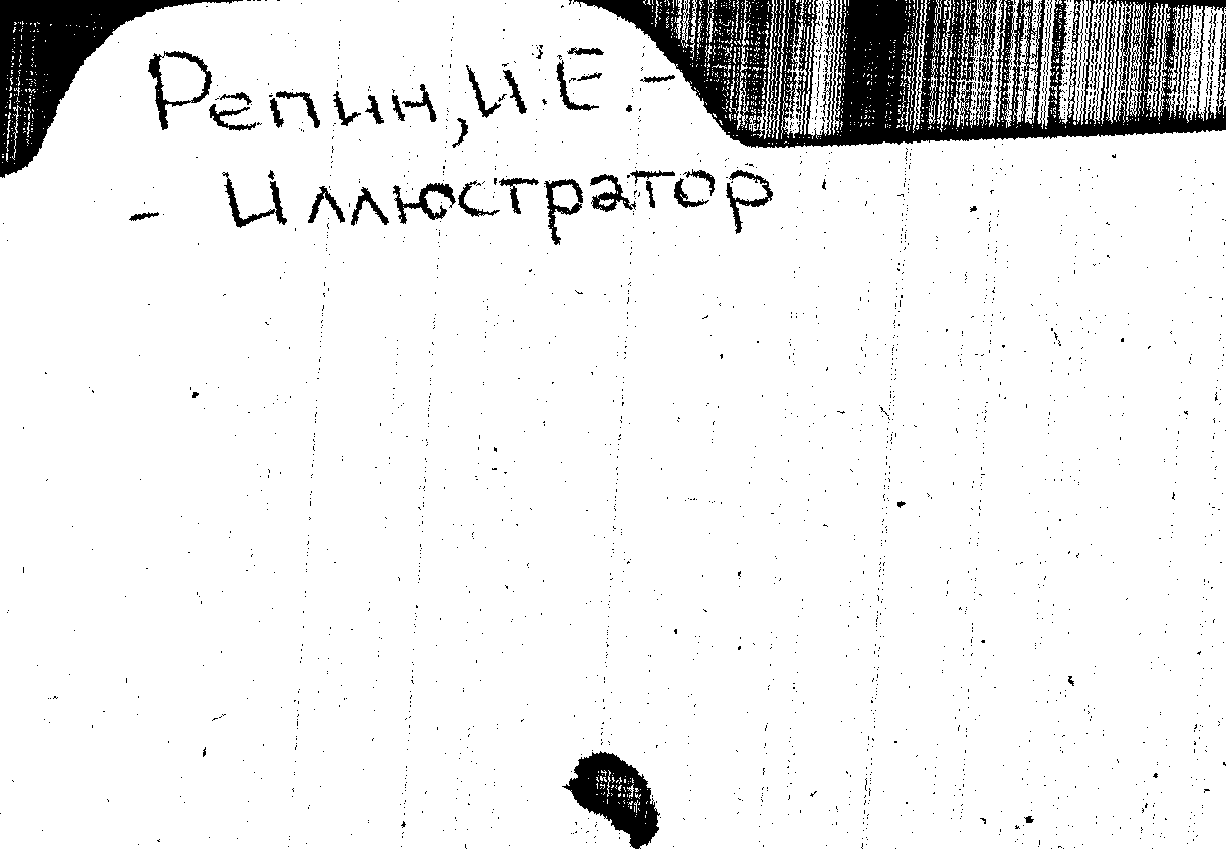 Репин, И.Е. -
- Иллюстратор